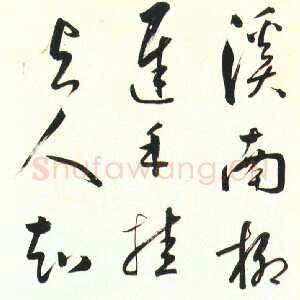 溪南柳
手挂
与人知
Shufawang.cn